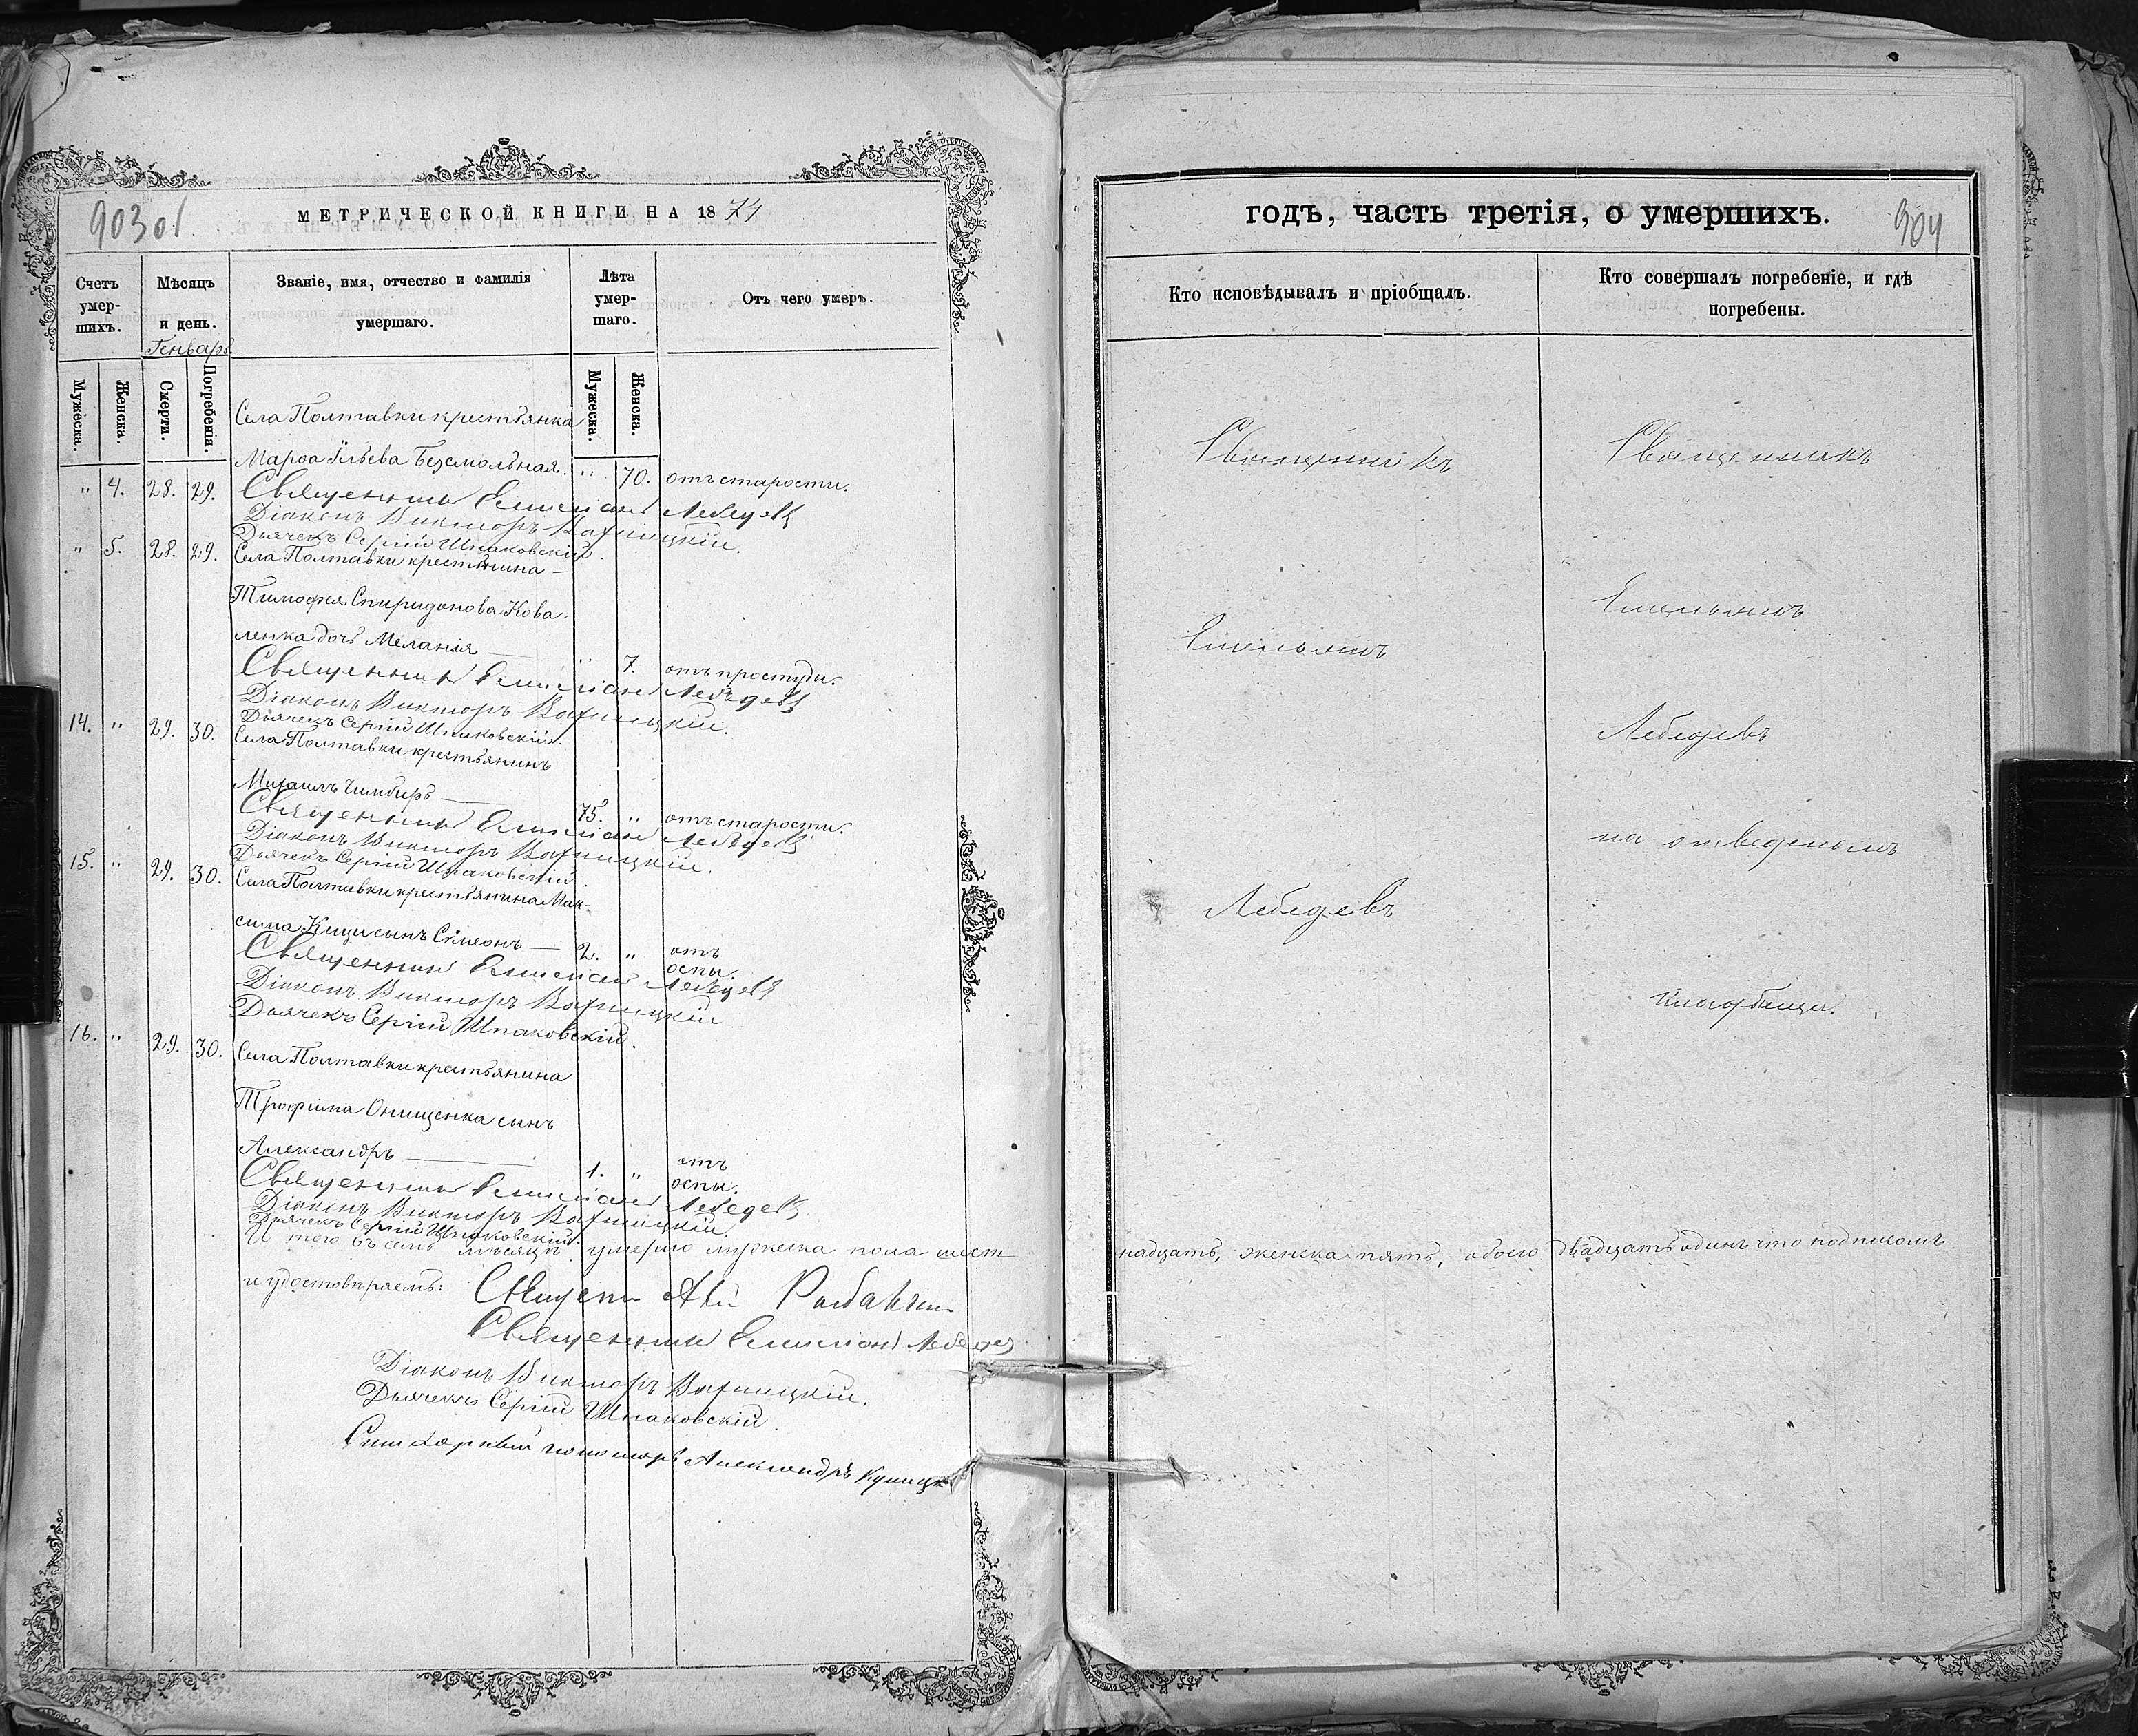 903 об
МЕТРИЧЕСКОЙ КНИГИ НА 1874
Счетъ умер-шихъ.
Мѣсяцъ и день.
Генварь
Званіе, имя, отчество и фамилія умершаго.
Лѣта умер-шаго.
Отъ чего умеръ.
Мужеска. Женска. Смерти. Погребенія. Мужеска. Женска.
Села Полтавки крестьянка
Марѳа Ильева Безмольная. " 70. отъ старости.
" 4. 28. 29. Священникъ Емилианъ Лебедевъ
Діаконъ Викторъ Варницкій.
Дьячекъ Сергій Шпаковскій.
" 5. 28. 29. Села Полтавки крестьянина
Тимофея Спиридонова Кова-
ленка дочь Меланія " 7. отъ простуды.
Священникъ Емилианъ Лебедевъ
Діаконъ Викторъ Варницкій.
Дьячекъ Сергій Шпаковскій.
14. " 29. 30. Села Полтавки крестьянинъ
Михаилъ Чимбиръ 75. " отъ старости.
Священникъ Емилианъ Лебедевъ
Діаконъ Викторъ Варницкій.
Дьячекъ Сергій Шпаковскій.
15. " 29. 30. Села Полтавки крестьянина Мак-
сима Кици сынъ Симеонъ 2. " отъ оспы.
Священникъ Емилианъ Лебедевъ
Діаконъ Викторъ Варницкій
Дьячекъ Сергій Шпаковскій.
16. " 29. 30. Села Полтавки крестьянина
Трофима Онищенка сынъ
Александръ 1. " отъ оспы.
Священникъ Емилианъ Лебедевъ
Діаконъ Викторъ Варницкій.
Дьячекъ Сергій Шпаковскій.
И того въ семъ мѣсяцѣ умерло мужеска пола шест-
и удостовѣряемъ: Священ
Священникъ Емилианъ Лебедевъ
Діаконъ Викторъ Варницкій.
Дьячекъ Сергій Шпаковскій.
пономарь Александръ
годъ, часть третія, о умершихъ.
904
Кто исповѣдывалъ и пріобщалъ.
Кто совершалъ погребеніе, и гдѣ погребены.
Священникъ
Емельянъ
Лебедевъ
Священникъ
Емельянъ
Лебедевъ
на отведеномъ
кладбище.
надцать, женска пять, обоего двадцать одинъ что подписомъ